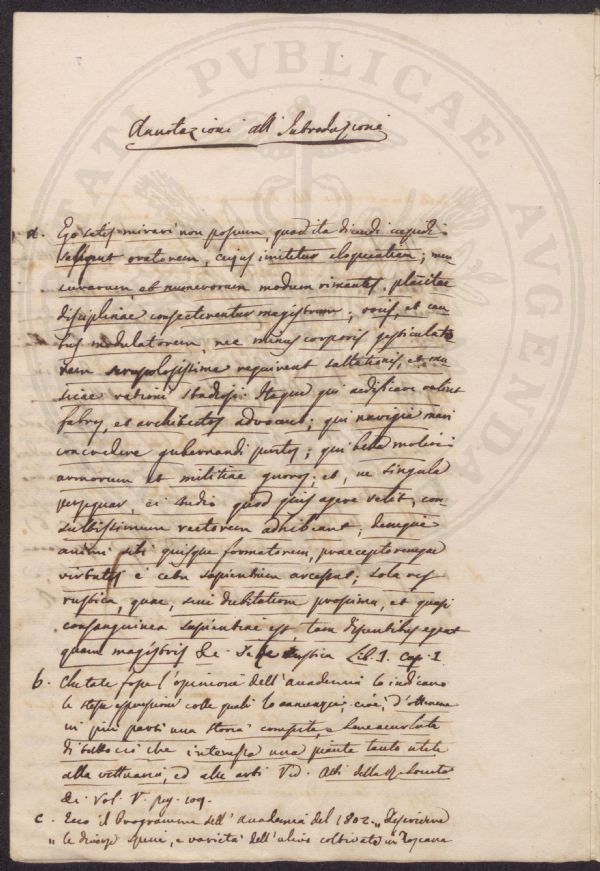 Annotazioni all' Introduzione
a. Ego satis mirari non possum, quod ita dicendi cupidi
seligant oratorem, cujus imitetur eloquentiam; men
surarum, et numerorum modum rimantes, placitae
disciplinae consectarentur magistrum; vocis, et can
tus modulatorem, nec minus corporis gesticulato
rem scrupolosissime requirent saltationis, et mu
sicae rationi studiosi. Itaque qui aedificare velint
fabros, et architectos advocent; qui navigia mari
concredere gubernandi peritos; qui bella moliri
armorum et militiae gnaros; et, ne singula
persequar, ei studio quod quis agere velit, con
sultissimum rectorem adhibeant; denique
animi sibi quisque formatorem, praeceptoremque
virtutis e cetu sapientium arcessat; sola res
rustica, quae, sine dubitatione proxima, et quasi
consanguinea sapientiae est, tam discentibus egeat
quam magistris De Re Rustica Lib. I. Cap. I
b. Che tale fosse l'opinione dell'accademia lo indicano
le stesse espressioni colle quali lo annunziò, cioè, d'ottenere
in più parti una storia compita, e bene accurata
di tutto ciò che interessa una pianta tanto utile
alla vettovaria, ed alle arti Vid. Atti della R. Società
Vol. V. pag. 109.
c. Ecco il Programma dell'accademia del 1802. „ Descrivere
„ le diverse specie, e varietà dell'ulivo coltivate in Toscana
PVBLICAE
AVGENDA